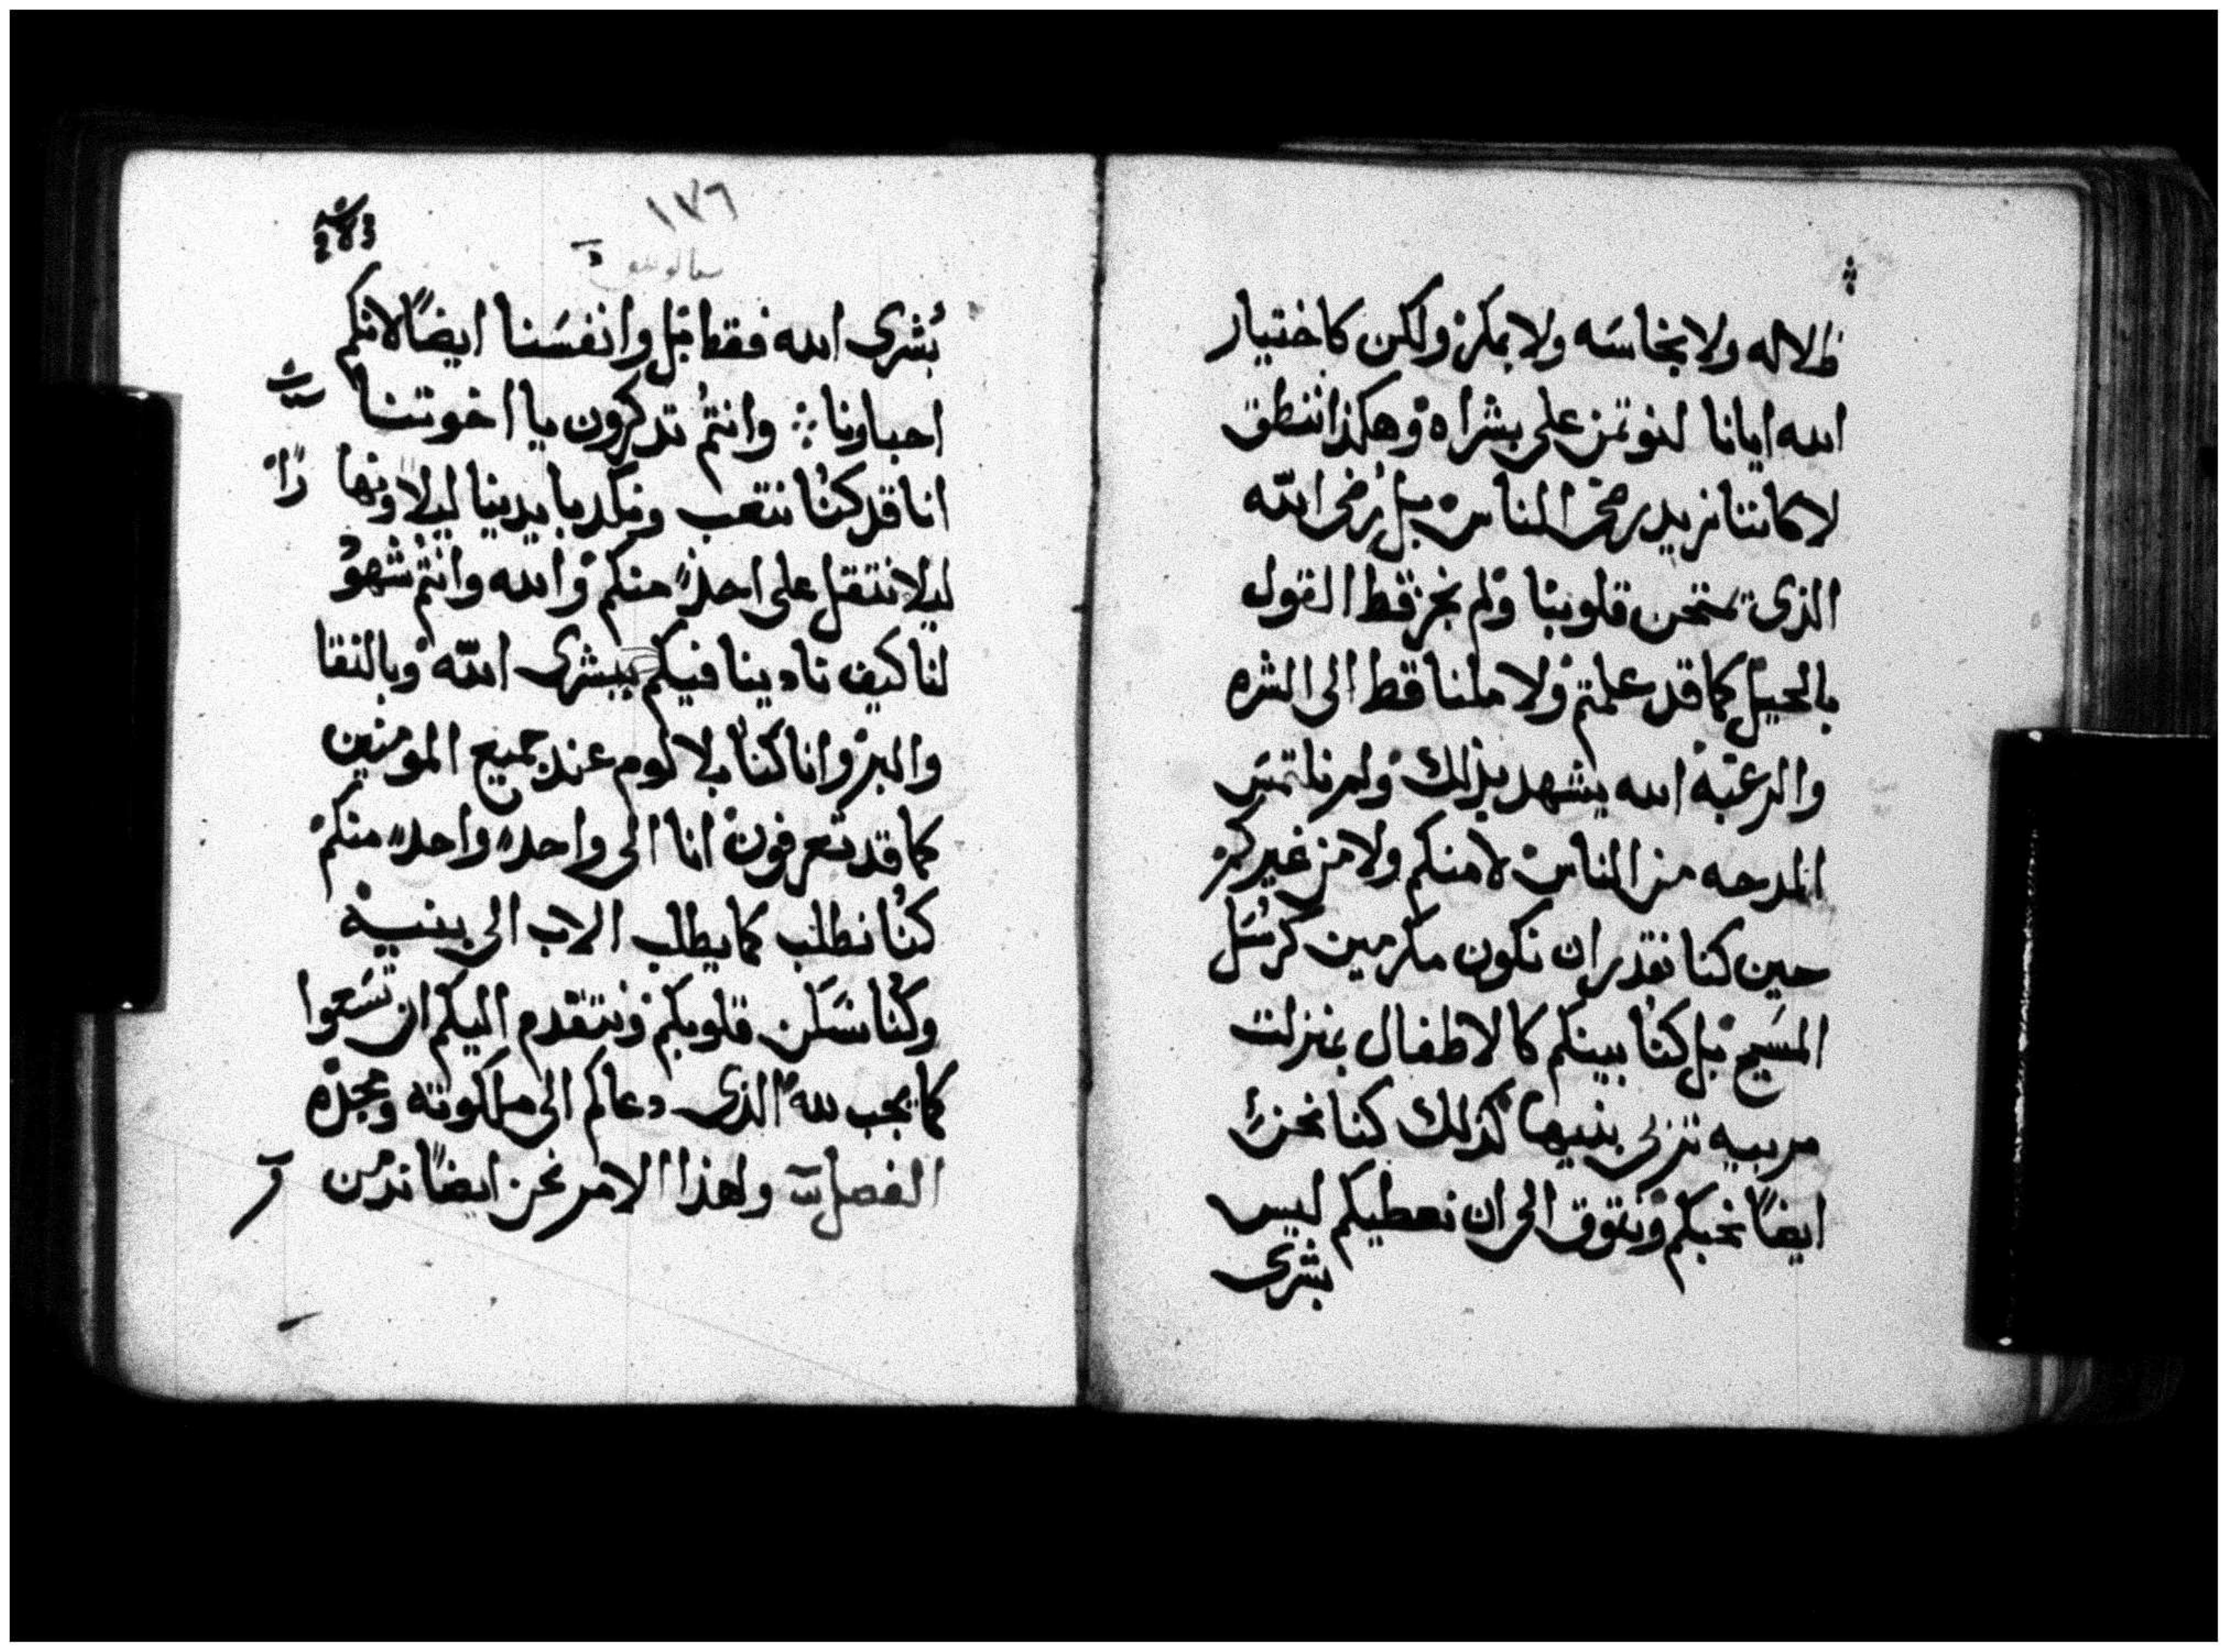 ظلاله ولا بنجاسَه ولا بمكر ولكن كاختيار
الله ايانا لنوتمن على بشراه وهكذا ننطق
لا كاننا نريد رضى الناس بل رُضى الله
الذى يمتحن قلوبنا ولم نجز قط القول
بالحيل كما قد علمتم ولا ملنا قط الى الشره
والرغبه الله يشهد بذلك ولم نلتمس
المدحه من الناس لا منكم ولا من غيركم
حين كنا نقدر ان نكون مكرمين كرسُل
المسَيح بل كنُا بينكم كالاطفال بمنزلت
مربيه تربى بنيها كذلك كنا نحن
ايضاً نحبكم ونتوق الى ان نعطيكم ليس
بشرى
١٧٦
بُشرى الله فقط بل وانفسَنا ايضاً لانكم
احباونا وانتمُ تدكرون يا اخوتنا
انا قد كنُا نتعب ونكد بايدينا ليلاً ونهاراً
ليلا نتقل على احدٍ منكم والله وانتم شهود
لنا كيف نادينا فيكم ببشرى الله وبالنقا
والبر وانا كنا بلا لوم عند جميع المومنين
كما قد تعرفون انا الى واحدٍ واحدٍ منكم
كنُا نطلب كما يطلب الاب الى بنيه
وكنُا نسَكن قلوبكم ونتقدم اليكم ان تسَعوا
كما يجب لله الذى دعاكم الى ملكوته ومجده
الفصل ولهذا الامر نحن ايضاً ندمن